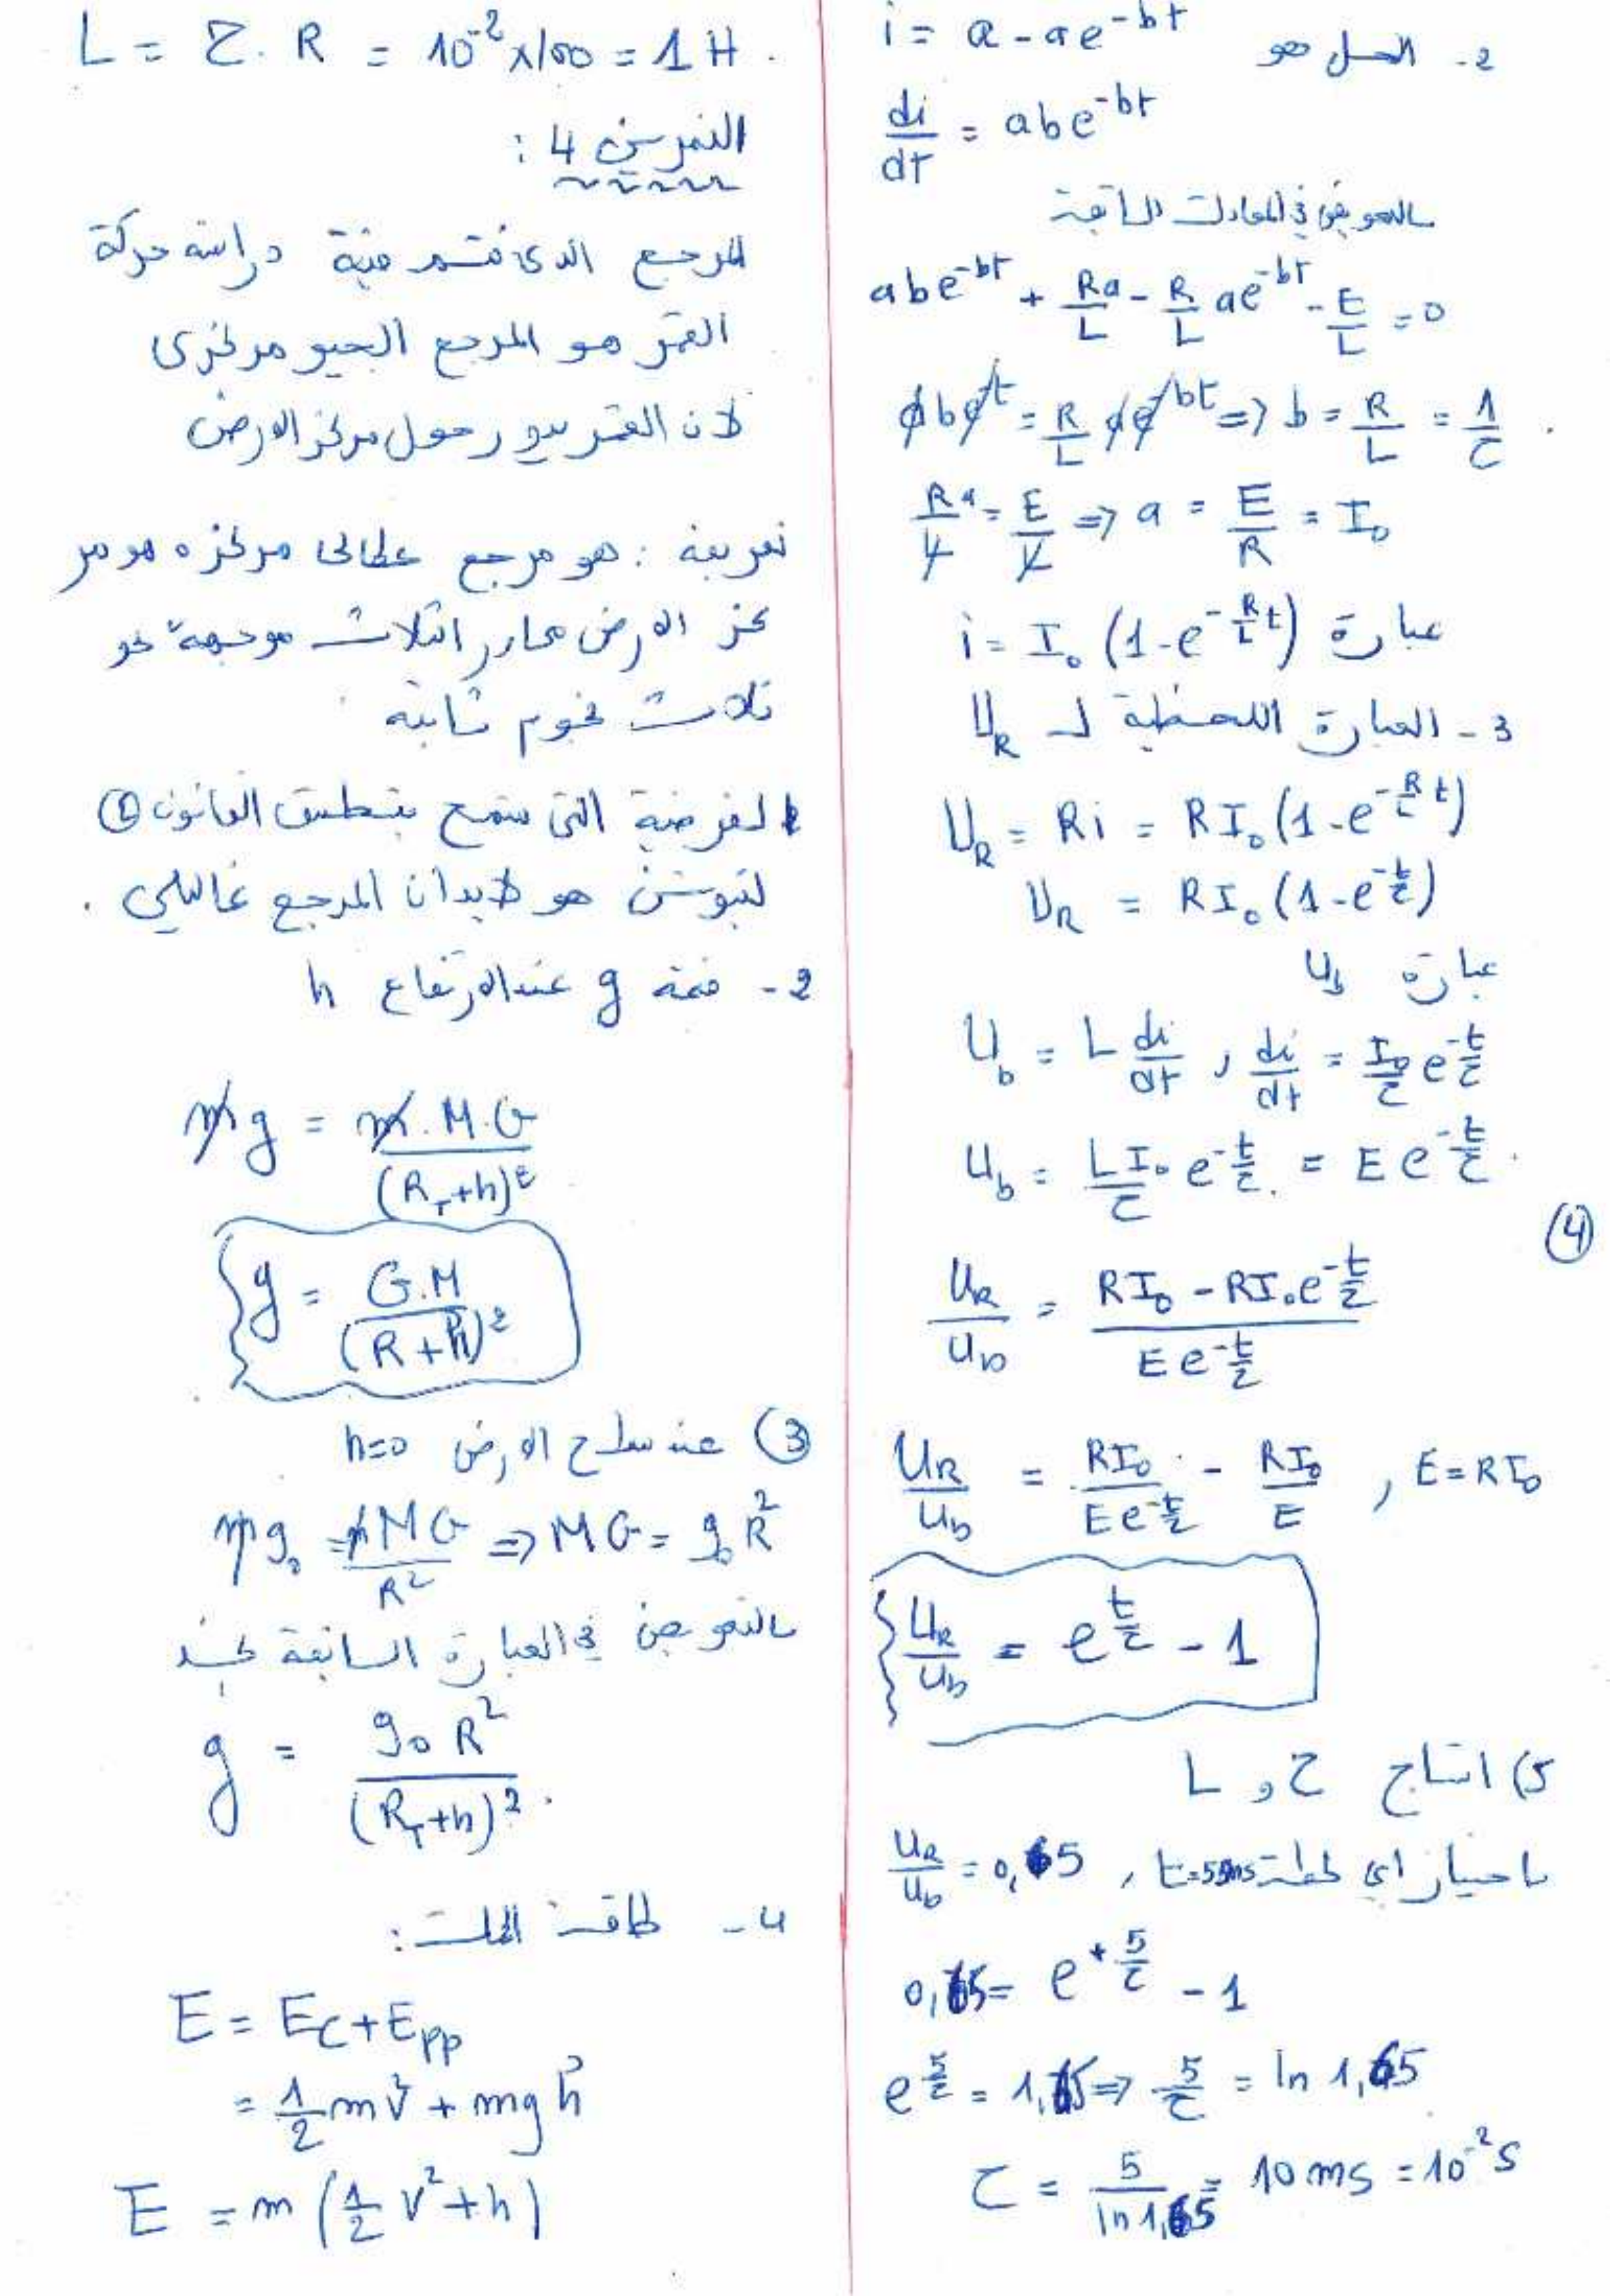 2- الحل هو i = a - ae^{-bt}
di/dt = abe^{-bt}
بالتعويض في المعادلة السابقة
abe^{-bt} + Ra/L - R/L ae^{-bt} - E/L = 0
abe^{-bt} = R/L ae^{-bt} => b = R/L = 1/τ .
Ra/L = E/L => a = E/R = I₀
عبارة i = I₀ (1-e^{-R/L t})
3 - العبارة اللحظية لـ U_R
U_R = Ri = RI₀(1-e^{-R/L t})
U_R = RI₀(1-e^{-t/τ})
عبارة U_b
U_b = L di/dt , di/dt = I₀/τ e^{-t/τ}
U_b = LI₀/τ e^{-t/τ} = E e^{-t/τ} .
④
U_R/U_b = (RI₀ - RI₀e^{-t/τ}) / (E e^{-t/τ})
U_R/U_b = RI₀/(E e^{-t/τ}) - RI₀/E , E = RI₀
U_R/U_b = e^{t/τ} - 1
5) استنتاج τ و L
باختيار اي لحظة t=5ms , U_R/U_b = 0,65
0,65 = e^{+5/τ} - 1
e^{5/τ} = 1,65 => 5/τ = ln 1,65
τ = 5/ln1,65 = 10 ms = 10^{-2} S
L = τ . R = 10^{-2} x 100 = 1 H .
التمرين 4 :
المرجع الذي فيه دراسة حركة
القمر هو المرجع الجيو مركزي
لان القمر يدور حول مركز الارض
تعريفه : هو مرجع مركزه هو مر
كز الارض محاور الثلاث موجهة نحو
ثلاث نجوم ثابتة
الفرضية التي تسمح بتطبيق القانون ②
لنيوتن هو لابد ان المرجع غاليلي .
2- قيمة g عند الارتفاع h
mg = m.M.G / (R_T+h)²
g = G.M / (R+h)²
③ عند سطح الارض h=0
mg₀ = mMG/R² => MG = g₀R²
بالتعويض في العبارة السابقة نجد
g = g₀R² / (R_T+h)² .
4- طاقة الجملة :
E = Ec + Epp
= 1/2 mv² + mgh
E = m (1/2 v² + h)